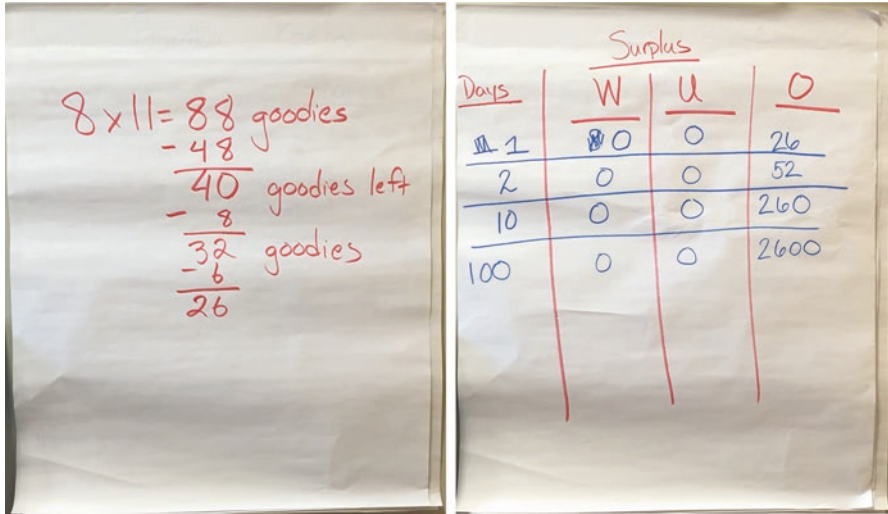 8 x 11 = 88 goodies
- 48
40 goodies left
- 8
32 goodies
- 6
26
Surplus
Days W U O
1 0 0 26
2 0 0 52
10 0 0 260
100 0 0 2600